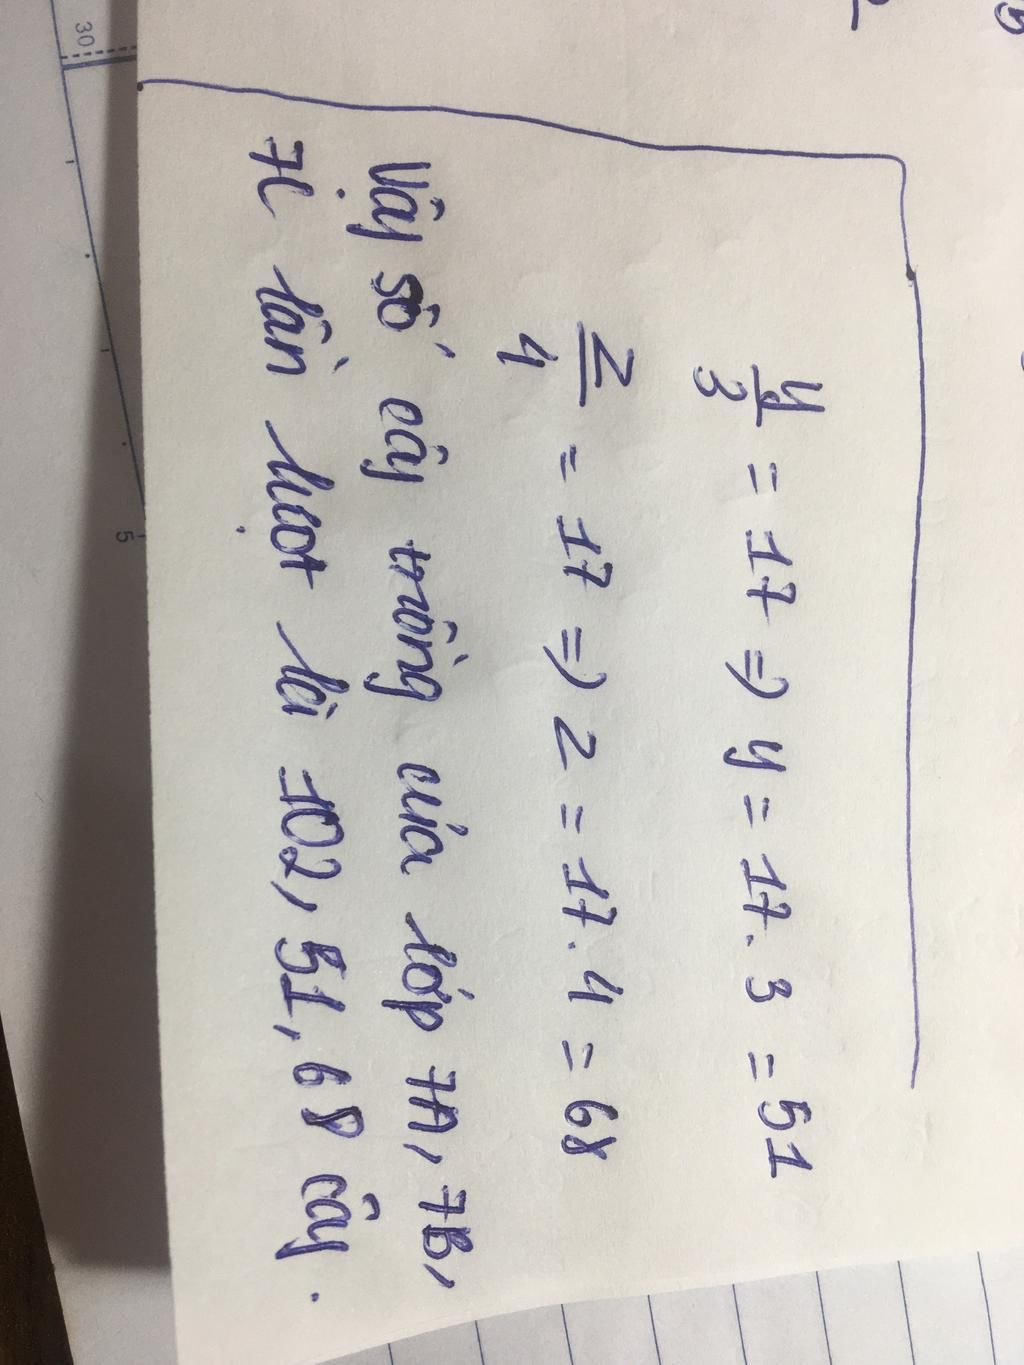 y/3 = 17 => y = 17.3 = 51
z/4 = 17 => z = 17.4 = 68
Vậy số cây trồng của lớp 7A, 7B,
7C lần lượt là 102, 51, 68 cây.
30
5